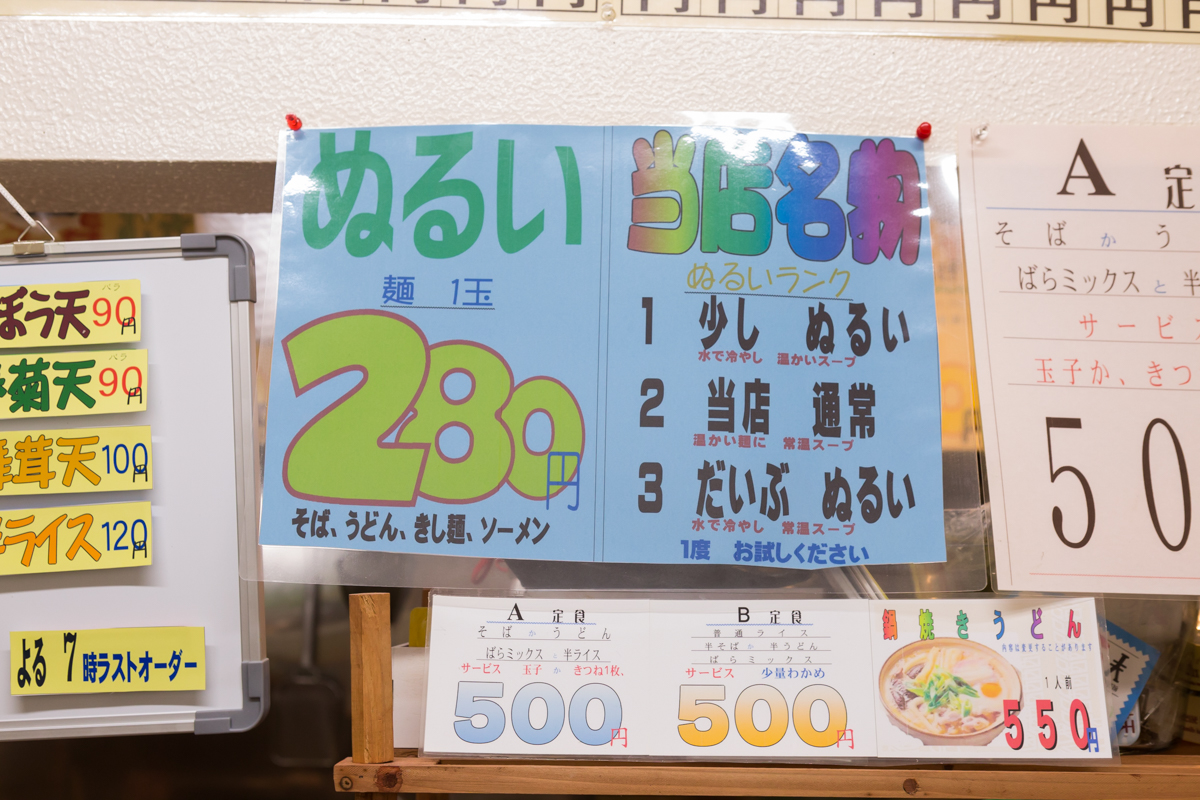 円 円 円 円 円 円 円 円 円 円 円
ぬるい
麺 1玉
280円
そば、うどん、きし麺、ソーメン
当店名物
ぬるいランク
1 少し ぬるい
水で冷やし 温かいスープ
2 当店 通常
温かい麺に 常温スープ
3 だいぶ ぬるい
水で冷やし 常温スープ
1度 お試しください
ぼう天 90円
バラ
菊天 90円
茸天 100円
ライス 120円
よる 7時ラストオーダー
A 定
そば か う
ばらミックス と 半
サービス
玉子か、きつ
50
A 定食
そば か うどん
ばらミックス と 半ライス
サービス 玉子 か きつね1枚、
500円
B 定食
普通ライス
半そば か 半うどん
ばらミックス
サービス 少量わかめ
500円
鍋焼きうどん
内容は変更することがあります
1人前
550円